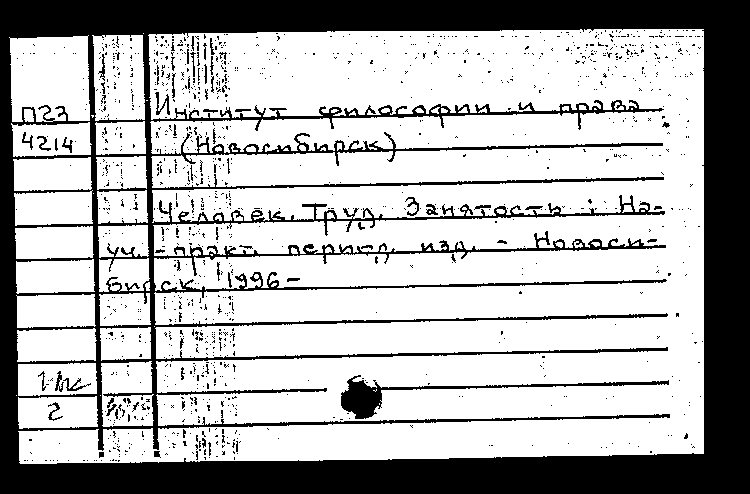 П23
4214
Институт философии и права
(Новосибирск)
Человек. Труд. Занятость : На-
уч.-практ. период. изд. - Новоси-
бирск, 1996-
2